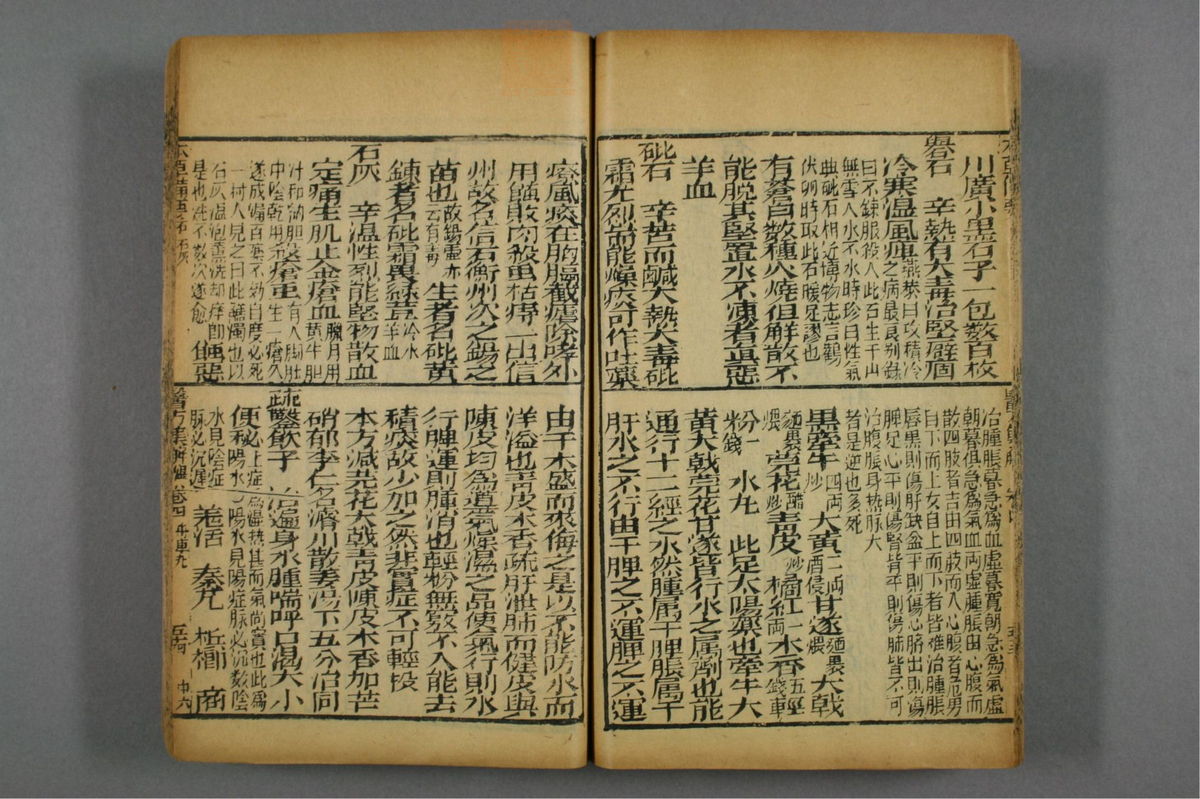 川廣小黑石子一包數百枚
礜石 辛熱有大毒治堅癖痼
冷寒溫風痺蘇恭曰攻積冷之病最良別錄
曰不鍊服殺人此石生于山無雪入水不冰時珍曰性氣
與砒石相近博物志言鸛伏卵時取此石暖足謬也
有蒼白數種火燒但解散不
能脫其堅置水不凍者真惡
羊血
砒石 辛苦而鹹大熱大毒砒
霜尤烈能燥痰可作吐藥
治腫脹暮急為血虛暮寬朝急為氣虛
朝暮俱急為氣血兩虛腫脹由心腹而
散四肢者吉由四肢而入心腹者危男
自下而上女自上而下者皆難治腫脹
唇黑則傷肝缺盆平則傷心臍出則傷
脾足心平則傷腎背平則傷肺皆不可
治腹脹身熱脉大
者是逆也多死
黑牽牛四兩炒 大黃二兩酒浸甘遂麵裹煨大戟
麵裹煨芫花醋炒青皮炒橘紅一兩木香五錢輕
粉一錢 水丸 此足太陽藥也牽牛大
黃大戟芫花甘遂皆行水之厲劑也能
通行十二經之水然腫屬于脾脹屬于
肝水之不行由于脾之不運脾之不運
療風痰在胸膈截瘧除哮外
用蝕敗肉殺蟲枯痔 出信
州故名信石衡州次之錫之
苗也故錫壺亦云有毒 生者名砒黃
鍊者名砒霜畏綠豆冷水羊血
石灰 辛溫性烈能堅物散血
定痛生肌止金瘡血臘月用黃牛膽
汁和納膽中陰乾用殺瘡蟲有人脚肚生一瘡久
遂成漏百藥不効自度必死一村人見之曰此鱔漏也以
石灰溫泡薰洗却癢卽是也洗不數次遂愈 蝕惡
由于木盛而來侮之是以不能防水而
洋溢也青皮木香疏肝泄肺而健皮與
陳皮均為導氣燥濕之品使氣行則水
行脾運則腫消也輕粉無竅不入能去
積痰故少加之然非實症不可輕投
本方減芫花大戟青皮陳皮木香加芒
硝郁李仁名濬川散姜湯下五分治同
疏鑿飲子 治遍身水腫喘呼口渴大小
便秘上症為濕熱甚而氣尚實也此為
陽水見陽症脉必沉數陰
水見陰症脉必沉遲 羌活 秦艽 檳榔 商
醫方集解 卷四